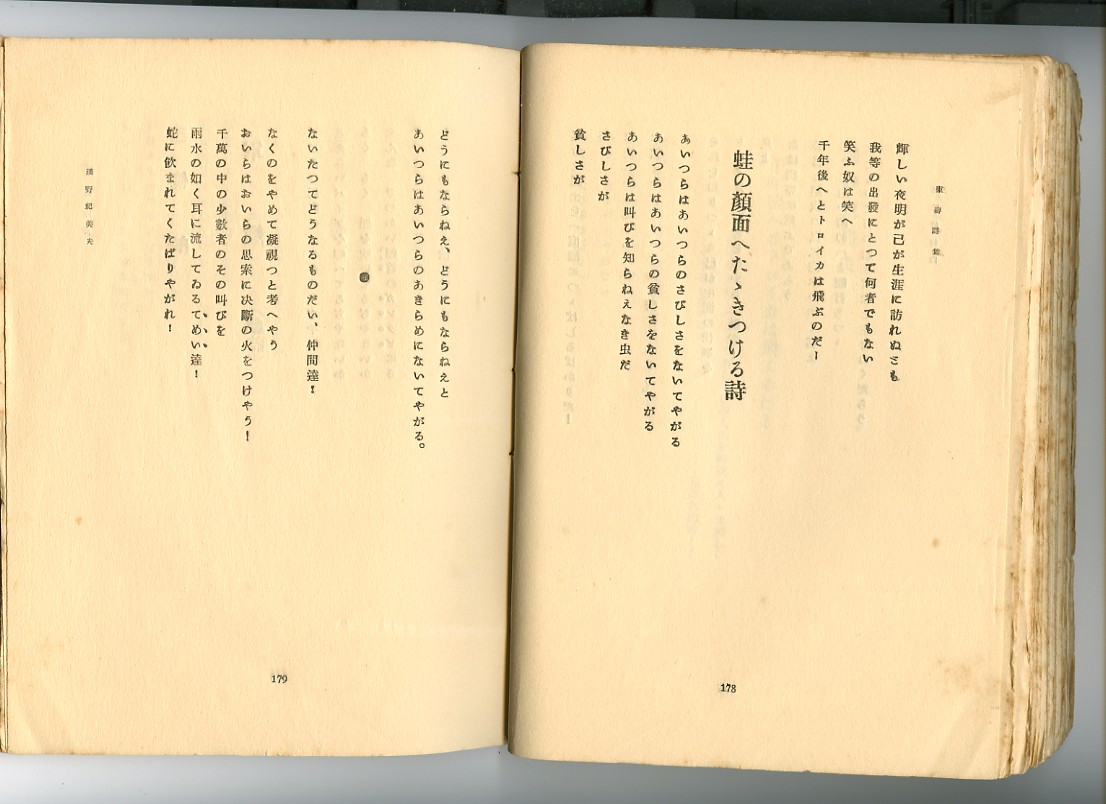 輝しい夜明が己が生涯に訪れぬとも
我等の出發にとつて何者でもない
笑ふ奴は笑へ
千年後へとトロイカは飛ぶのだー
蛙の顔面へたゝきつける詩
あいつらはあいつらのさびしさをないてやがる
あいつらはあいつらの貧しさをないてやがる
あいつらは叫びを知らねえなき虫だ
さびしさが
貧しさが
178
どうにもならねえ、どうにもならねえと
あいつらはあいつらのあきらめにないてやがる。
●
ないたつてどうなるものだい、仲間達！
なくのをやめて凝視つと考へやう
おいらはおいらの思索に決斷の火をつけやう！
千萬の中の少數者のその叫びを
雨水の如く耳に流してゐるてめい達！
蛇に飲まれてくたばりやがれ！
179